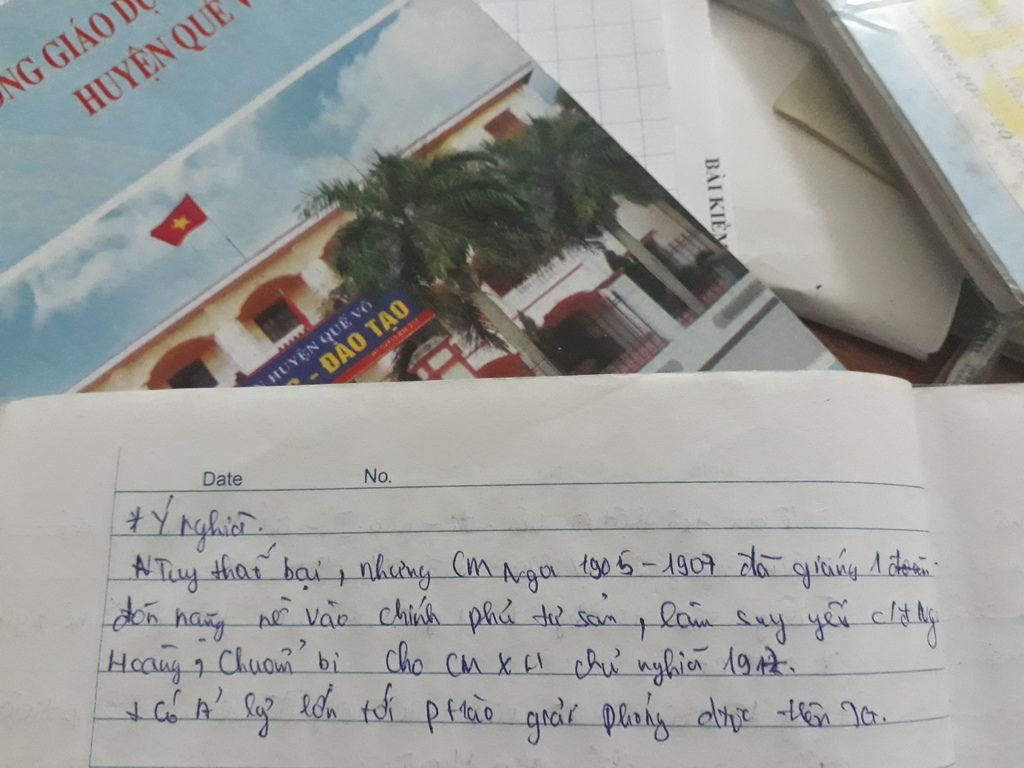 ÒNG GIÁO DỤ
HUYỆN QUẾ V
HUYỆN QUẾ VÕ
- ĐÀO TẠO
BÀI KIỂM
Date No.
* Ý nghĩa.
Tuy thất bại, nhưng CM Nga 1905-1907 đã giáng 1
đòn nặng nề vào chính phủ tư sản, làm suy yếu c/đ Ng
Hoàng, chuẩn bị cho CM XH chủ nghĩa 1917.
+ Có ả' lớn tới ptrào giải phóng dtộc trên TG.